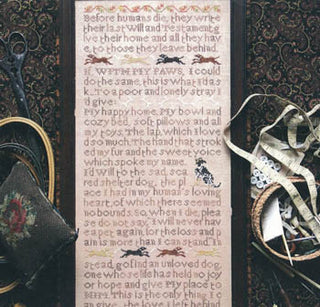 Before humans die, they write
their last Will and Testament, g
ive their home and all they hav
e, to those they leave behind.
If, WITH MY PAWS, I could
do the same, this is what I'd as
k. To a poor and lonely stray I
'd give:
My happy home. My bowl and
cozy bed, soft pillows and all
my toys. The lap, which I love
d so much. The hand that strok
ed my fur and the sweet voice
which spoke my name.
I'd will to the sad, sca
red shelter dog, the pl
ace I had in my human's loving
heart, of which there seemed
no bounds. So, when I die, pleas
e do not say, I will never hav
e a pet again, for the loss and p
ain is more than I can stand. In
stead, go find an unloved dog,
one whose life has held no joy
or hope and give MY place to
HIM. This is the only thing I c
an give... the love I left behind